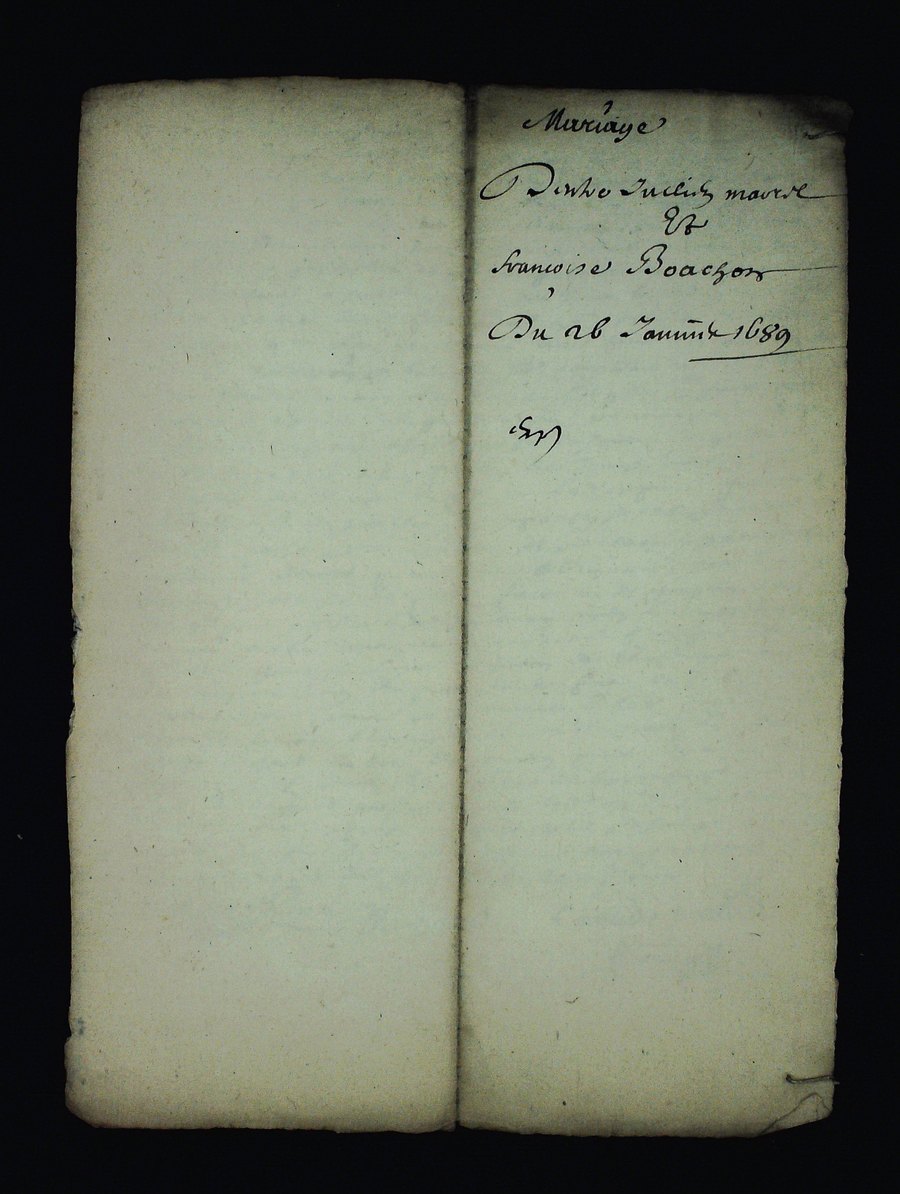 Mariage
Dentre Jullien mourel
Et
francoise Boachon
Du 26 Janvier 1689